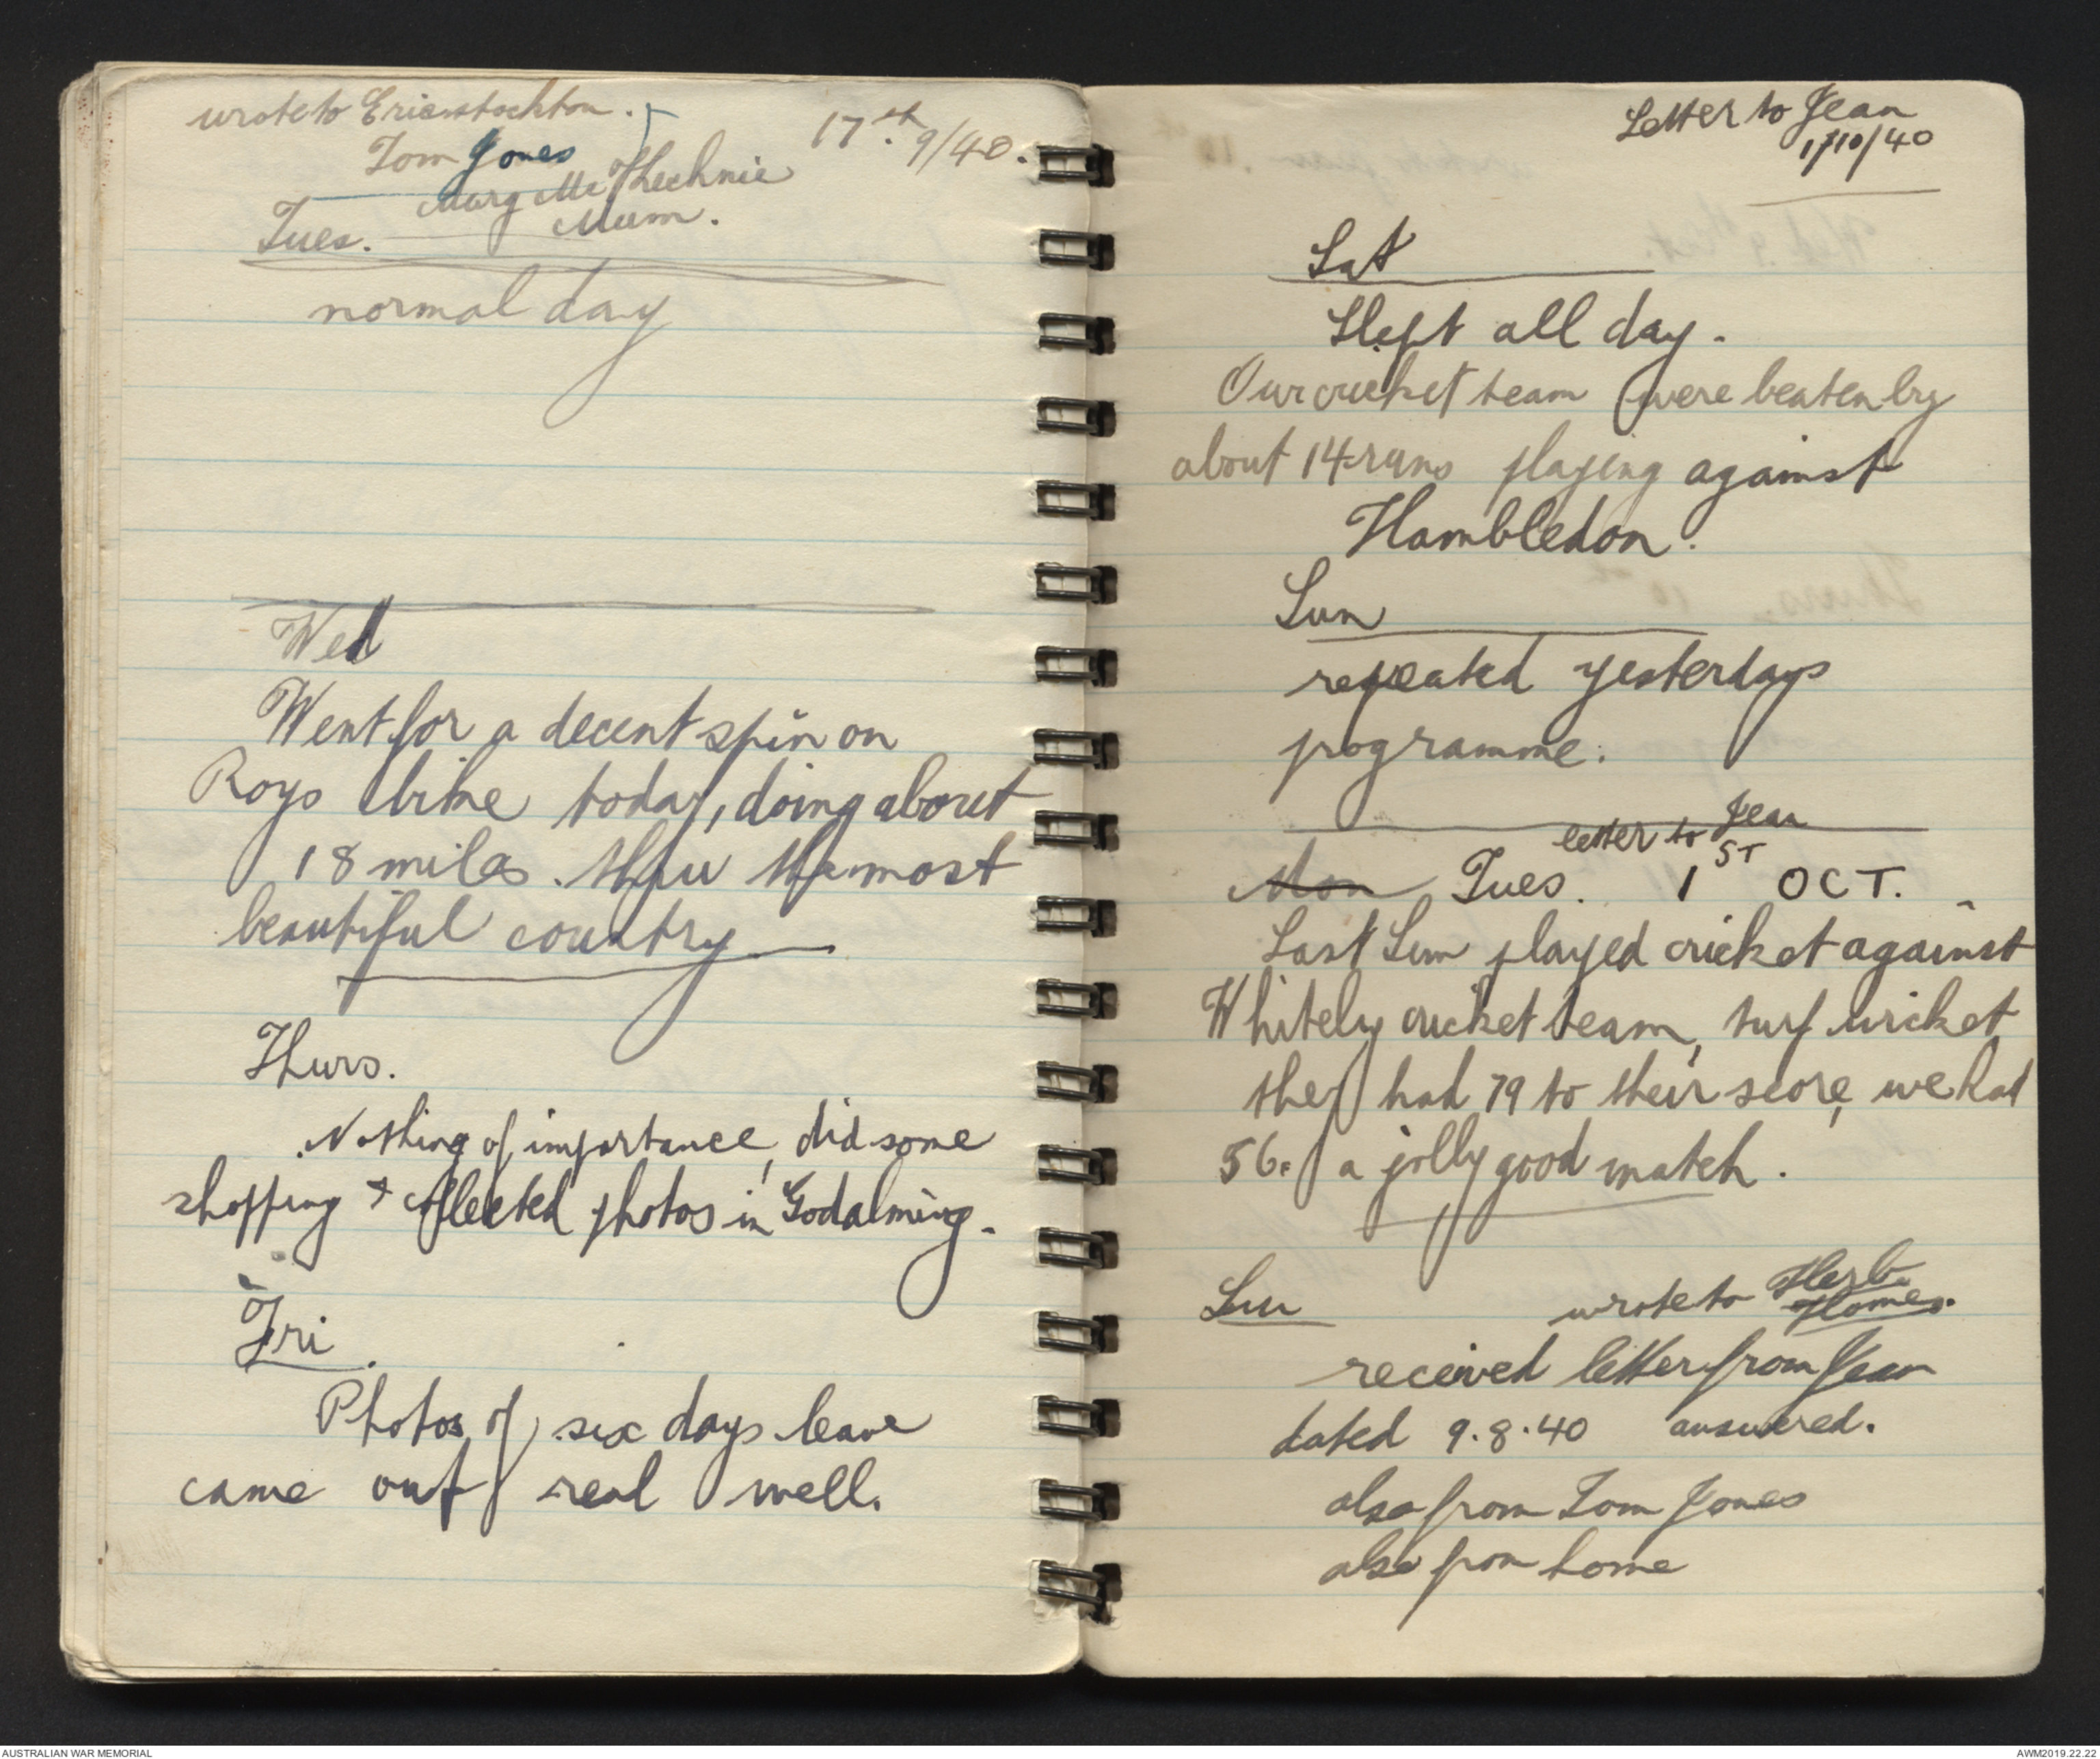 wrote to Eric Stockton.
17th 9/40.
Tom Jones
Marg Mc
Mum.
Tues.
normal day
Wed
Went for a decent spin on
Roys bike today, doing about
18 miles thru the most
beautiful country
Thurs.
Nothing of importance, did some
shopping & collected photos in Godalming.
Fri.
Photos of six days leave
came out real well.
Letter to Jean
1/10/40
Sat
Slept all day.
Our cricket team were beaten by
about 14 runs playing against
Hambledon.
Sun
repeated yesterdays
programme.
letter to Jean
Mon Tues. 1ST OCT.
Last Sun played cricket against
Whitely cricket team, turf wicket
they had 79 to their score, we had
56. a jolly good match.
Sun wrote to Herb
received letter from Jean
dated 9.8.40 answered.
also from Tom Jones
also from home
AUSTRALIAN WAR MEMORIAL
AWM2019.22.22